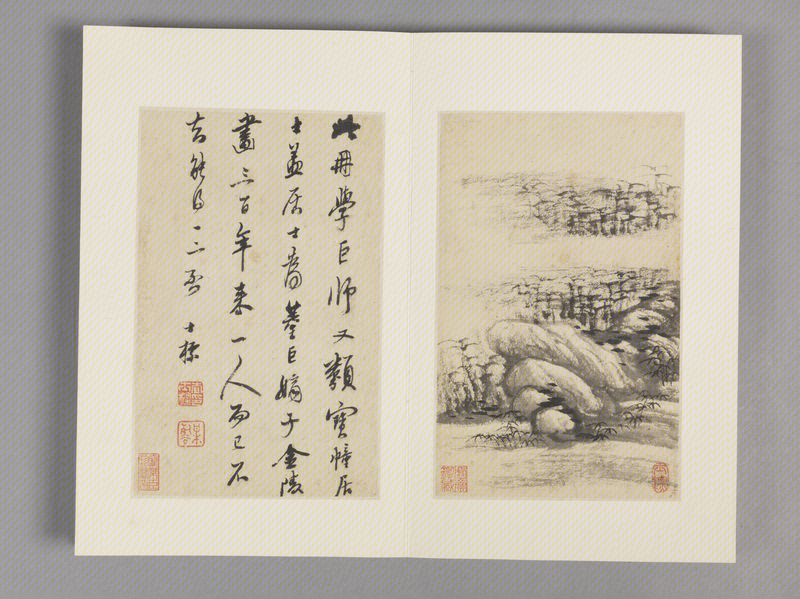 此冊學巨師又類寶幢居
士蓋居士爲董巨嫡子金陵
畫三百年來一人而已不
知能得一二否 士標